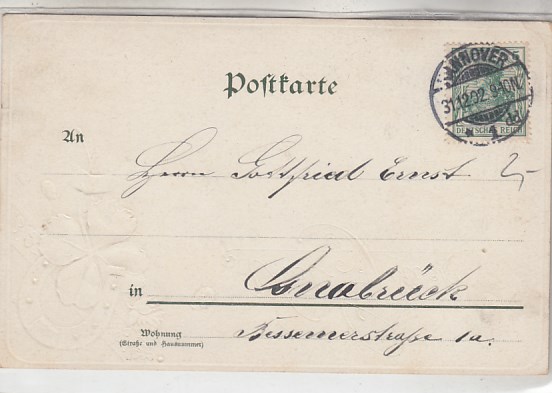 Postkarte
HANNOVER
31.12.02. 9-10N.
* 1
DEUTSCHES REICH
An
Herrn Gottfried Ernst
2,-
in
Osnabrück
Wohnung
(Straße und Hausnummer)
Bessemerstraße 1a.